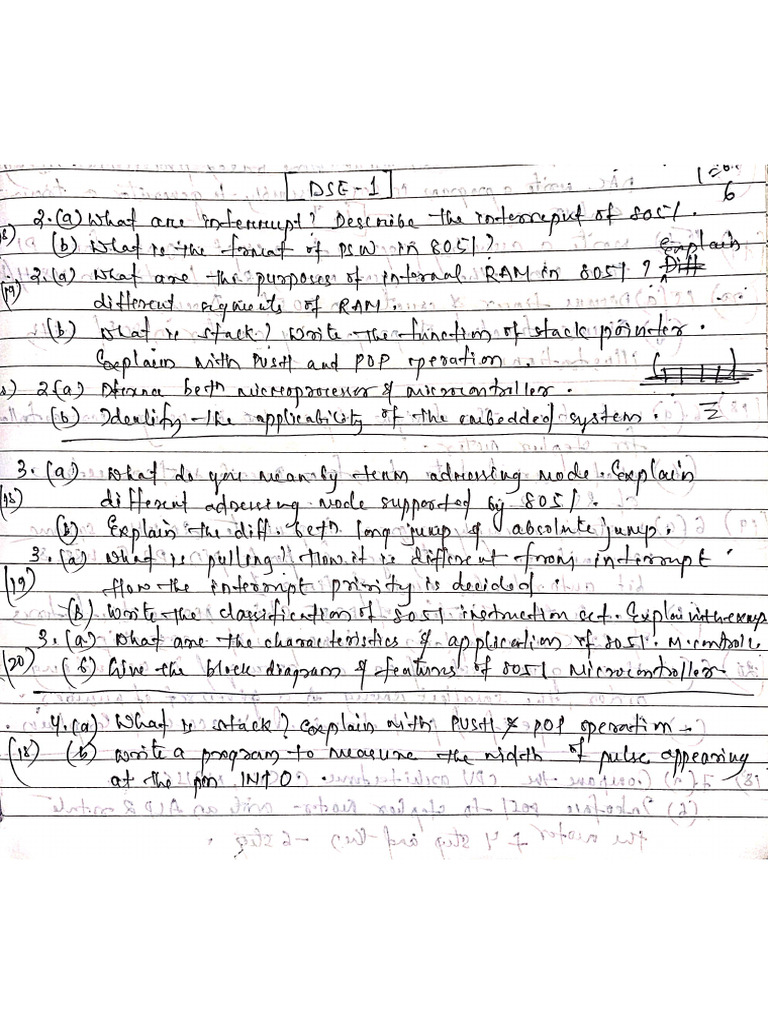 DSE-1
6
2.(a) What are interrupt? Describe the interreput of 8051.
(b) What is the format of PSW in 8051?
Explain
2.(a) What are the purposes of internal RAM in 8051?
(19)
different sigments of RAM.
(b) What is stack? Write the function of stack pointer.
Explain with PUSH and POP operation.
2(a) betn microprocessor & microcontroller.
(b) Identify the applicability of the embedded system.
3.(a) What do you mean by term adressing mode. Explain
(18)
different adressing mode supported by 8051.
(b) Explain the diff. betn long jump & absolute jump.
3.(a) What is pulling? How it is different from interrupt.
(19)
How the interrupt priority is decided.
(b) Write the classification of 8051 instruction set. Explain with examp
3.(a) What are the characteristics & application of 8051. M.controlle
(20) (b) Give the block diagram & features of 8051 Microcontroller
4.(a) What is stack? explain with PUSH & POP operation.
(18) (b) write a program to measure the width of pulse appearing
at the pin INTO.